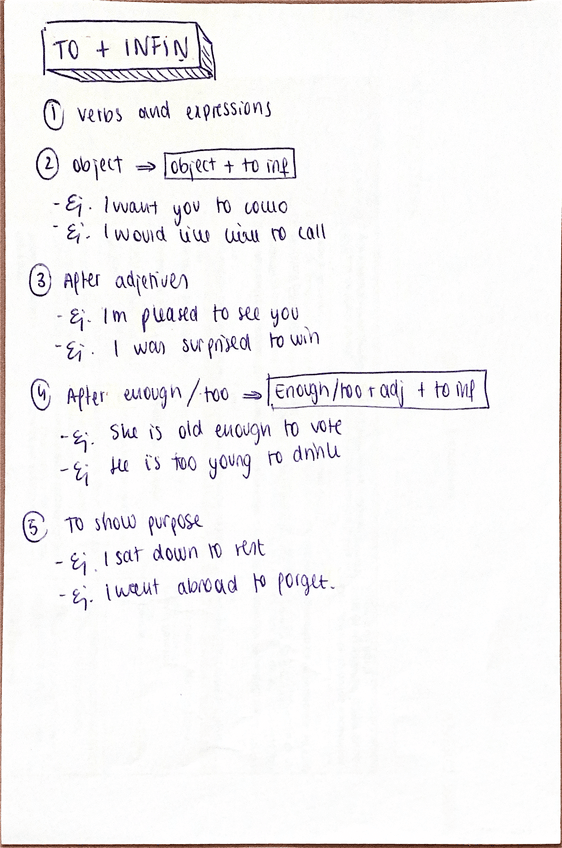 TO + INFIN
① Verbs and expressions
② object ⇒ object + to inf
- Ej. I want you to come
- Ej. I would like to call
③ After adjetives
- Ej. Im pleased to see you
- Ej. I was surprised to win
④ After enough/too ⇒ Enough/too + adj + to inf
- Ej. She is old enough to vote
- Ej He is too young to drink
⑤ To show purpose
- Ej. I sat down to rest
- Ej. I went abroad to forget.